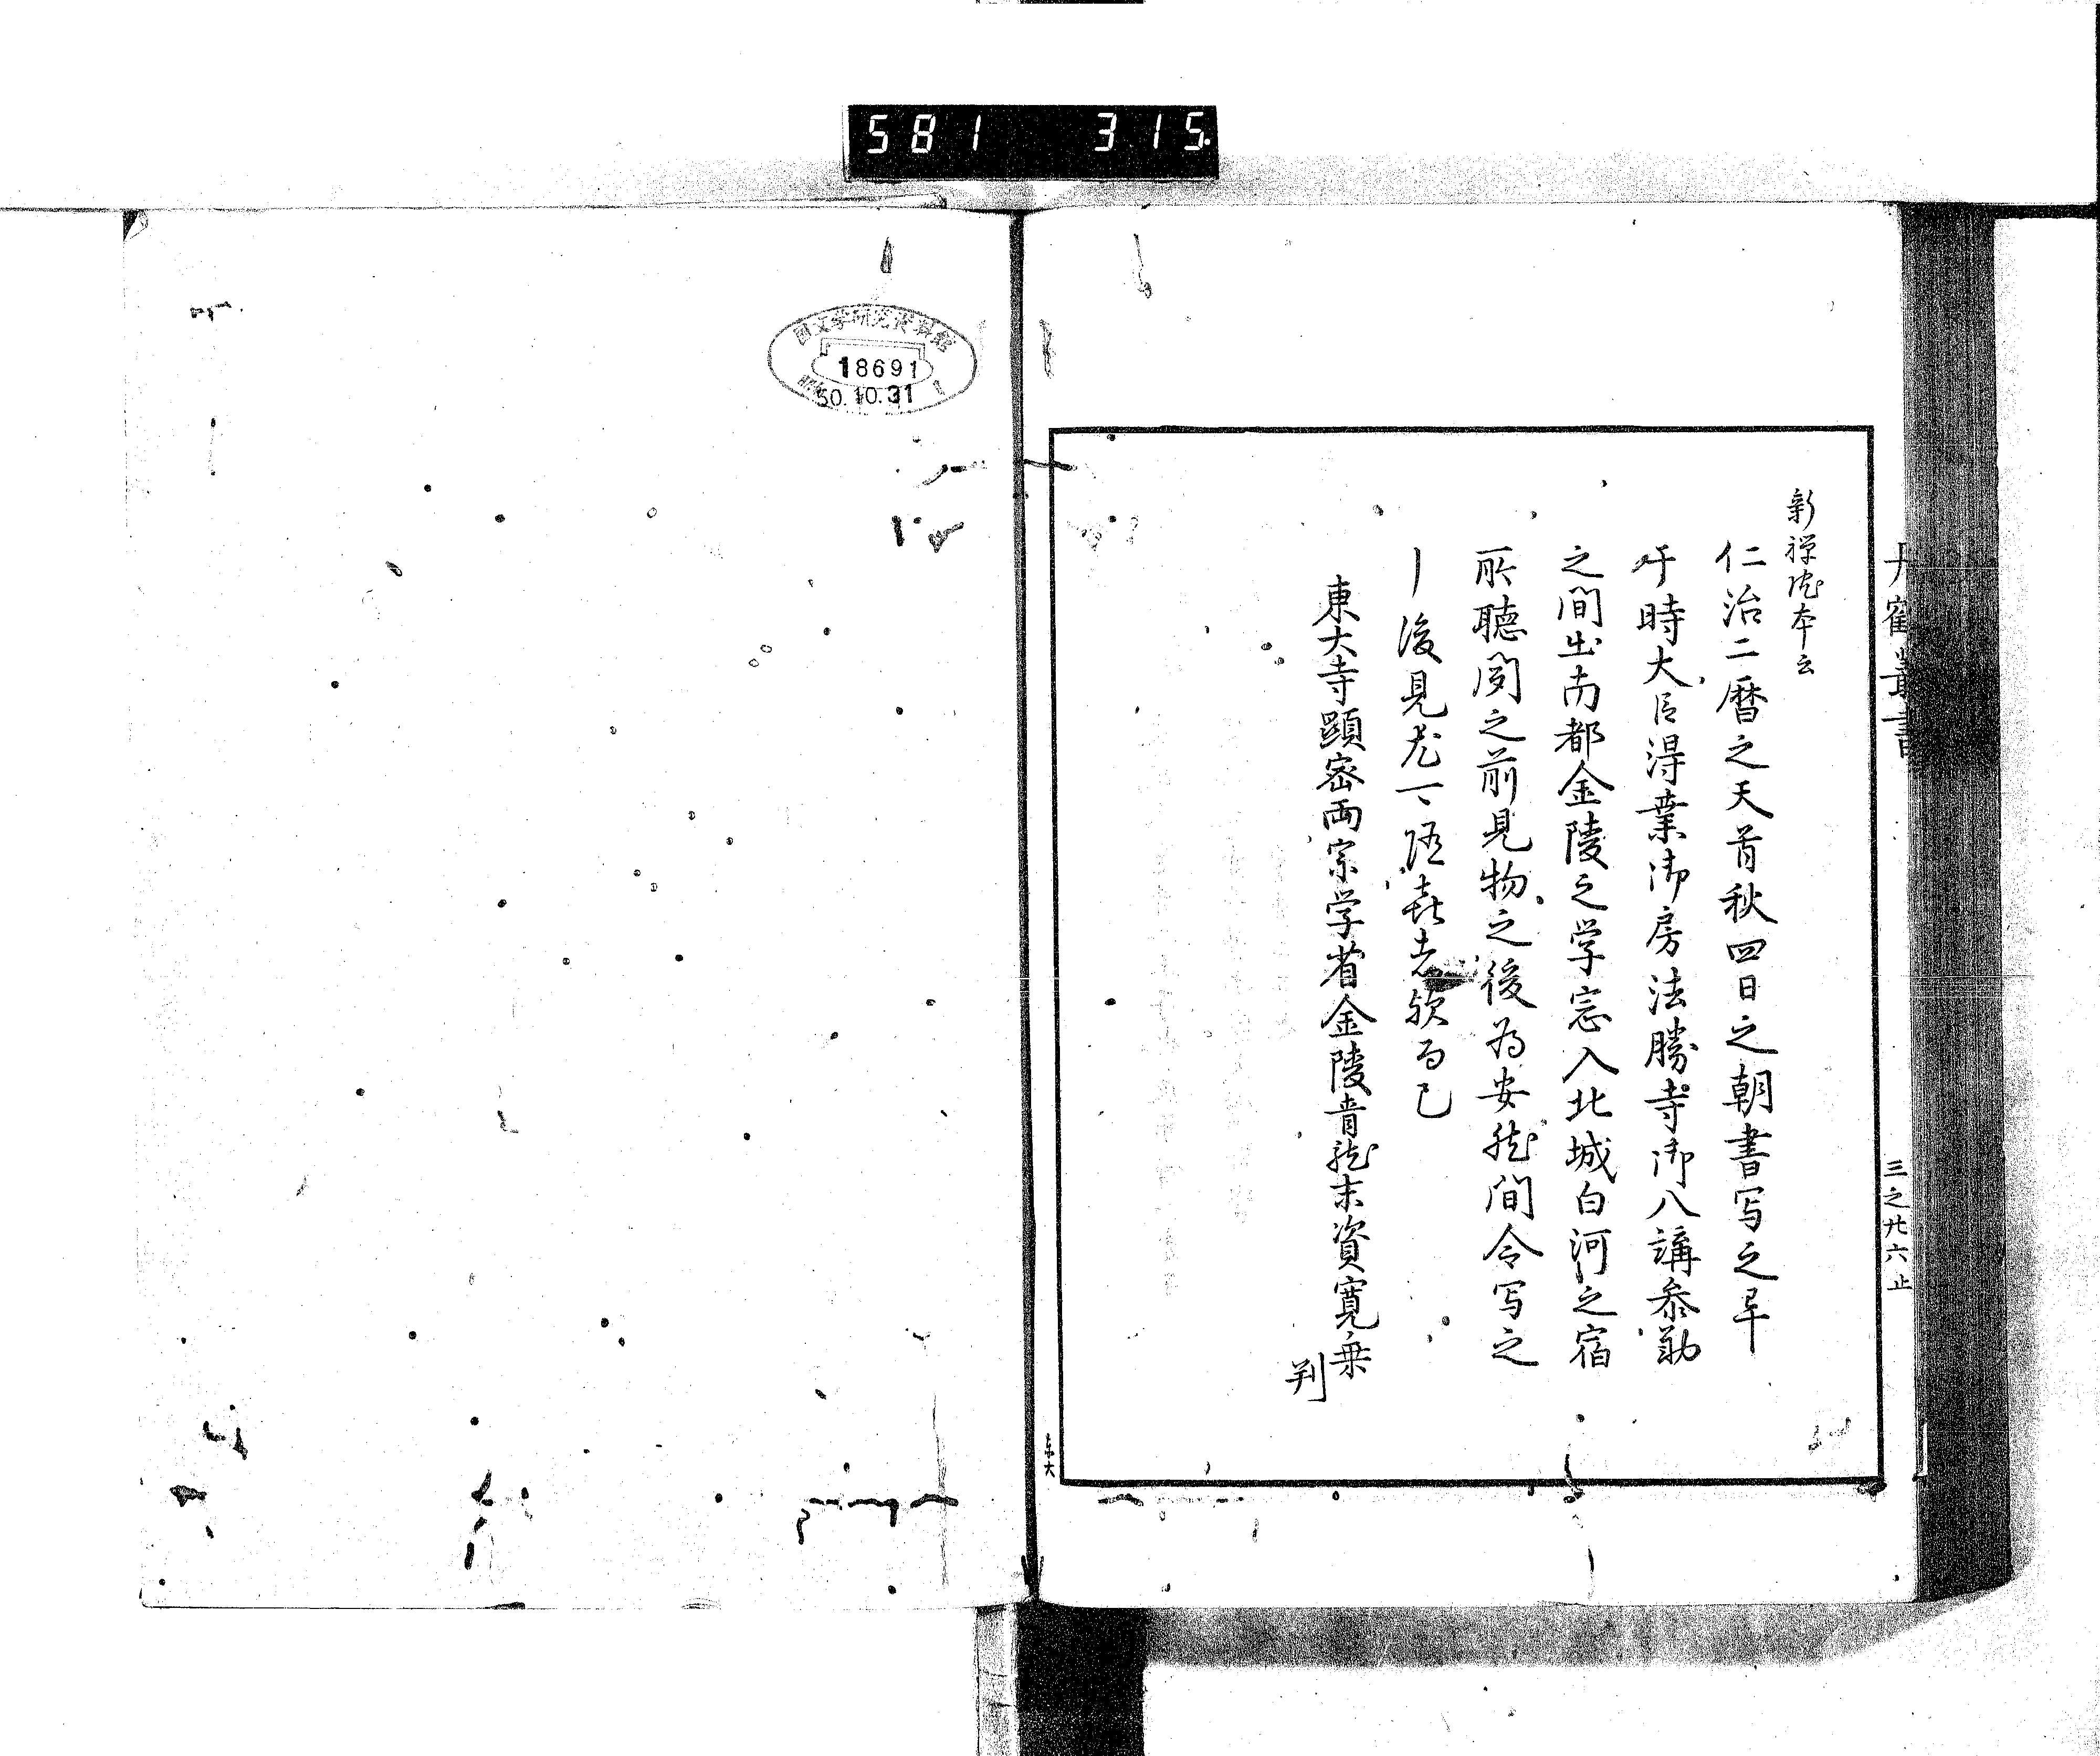 581 315
丹鶴叢書
三之廿六止
新禅院本云
仁治二暦之天首秋四日之朝書写之早
于時大臣得業御房法勝寺御八講参勤
之間出南都金陵之学窓入北城白河之宿
所聴聞之前見物之後為安然間令写之
後見尤可隠
而已
東大寺顕密両宗学省金陵青龍末資寛乗
判
東大
国文学研究資料館
18691
50.10.31